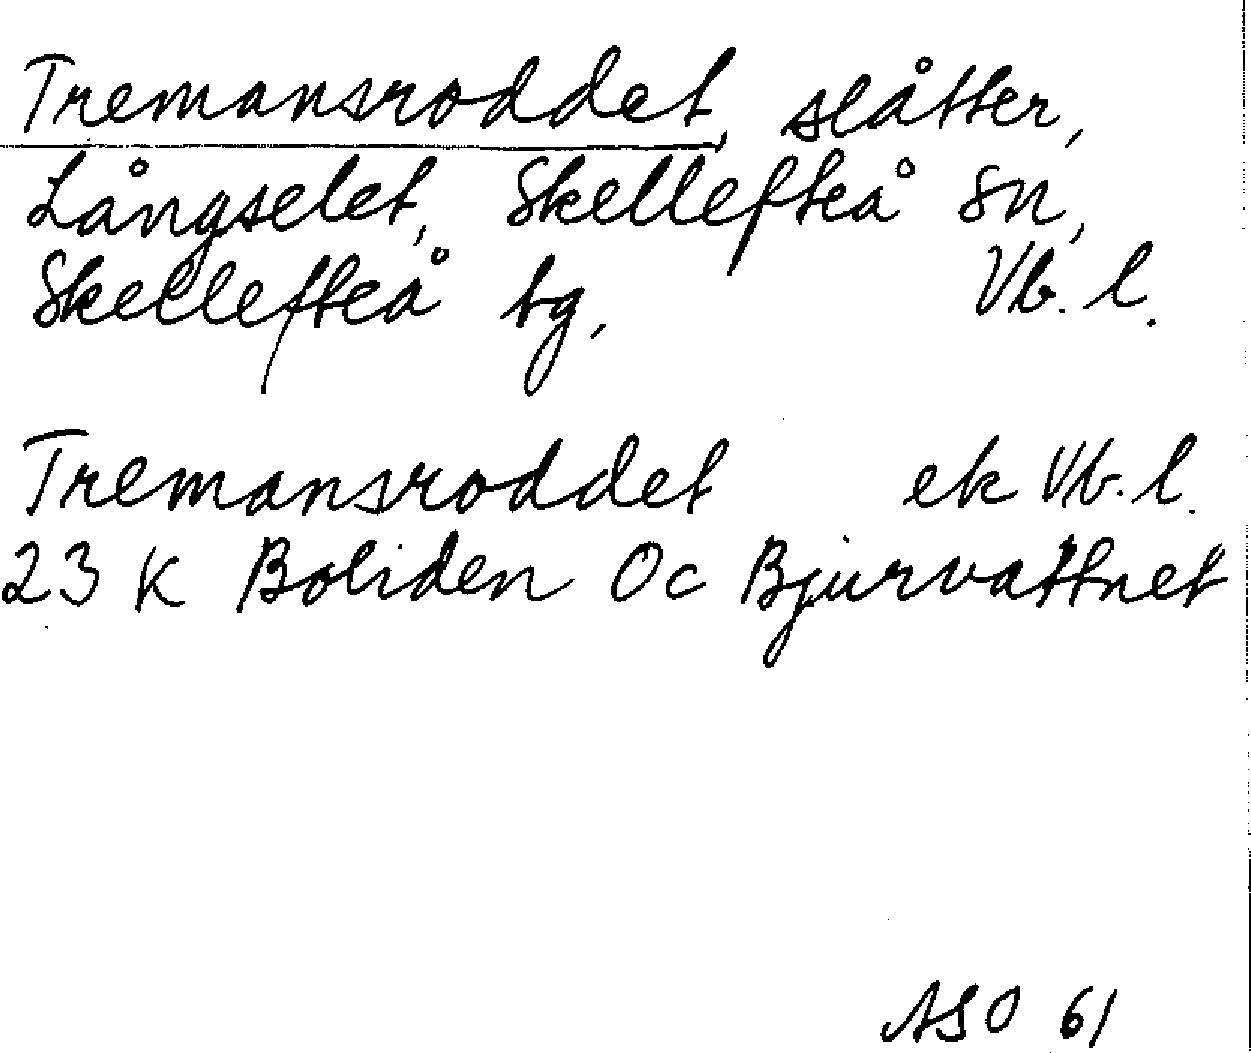 Tremansroddet, slåtter,
Långselet, Skellefteå sn,
Skellefteå tg, Vb. l.
Tremansroddet ek Vb. l.
23 K Boliden Oc Bjurvattnet
ASO 61